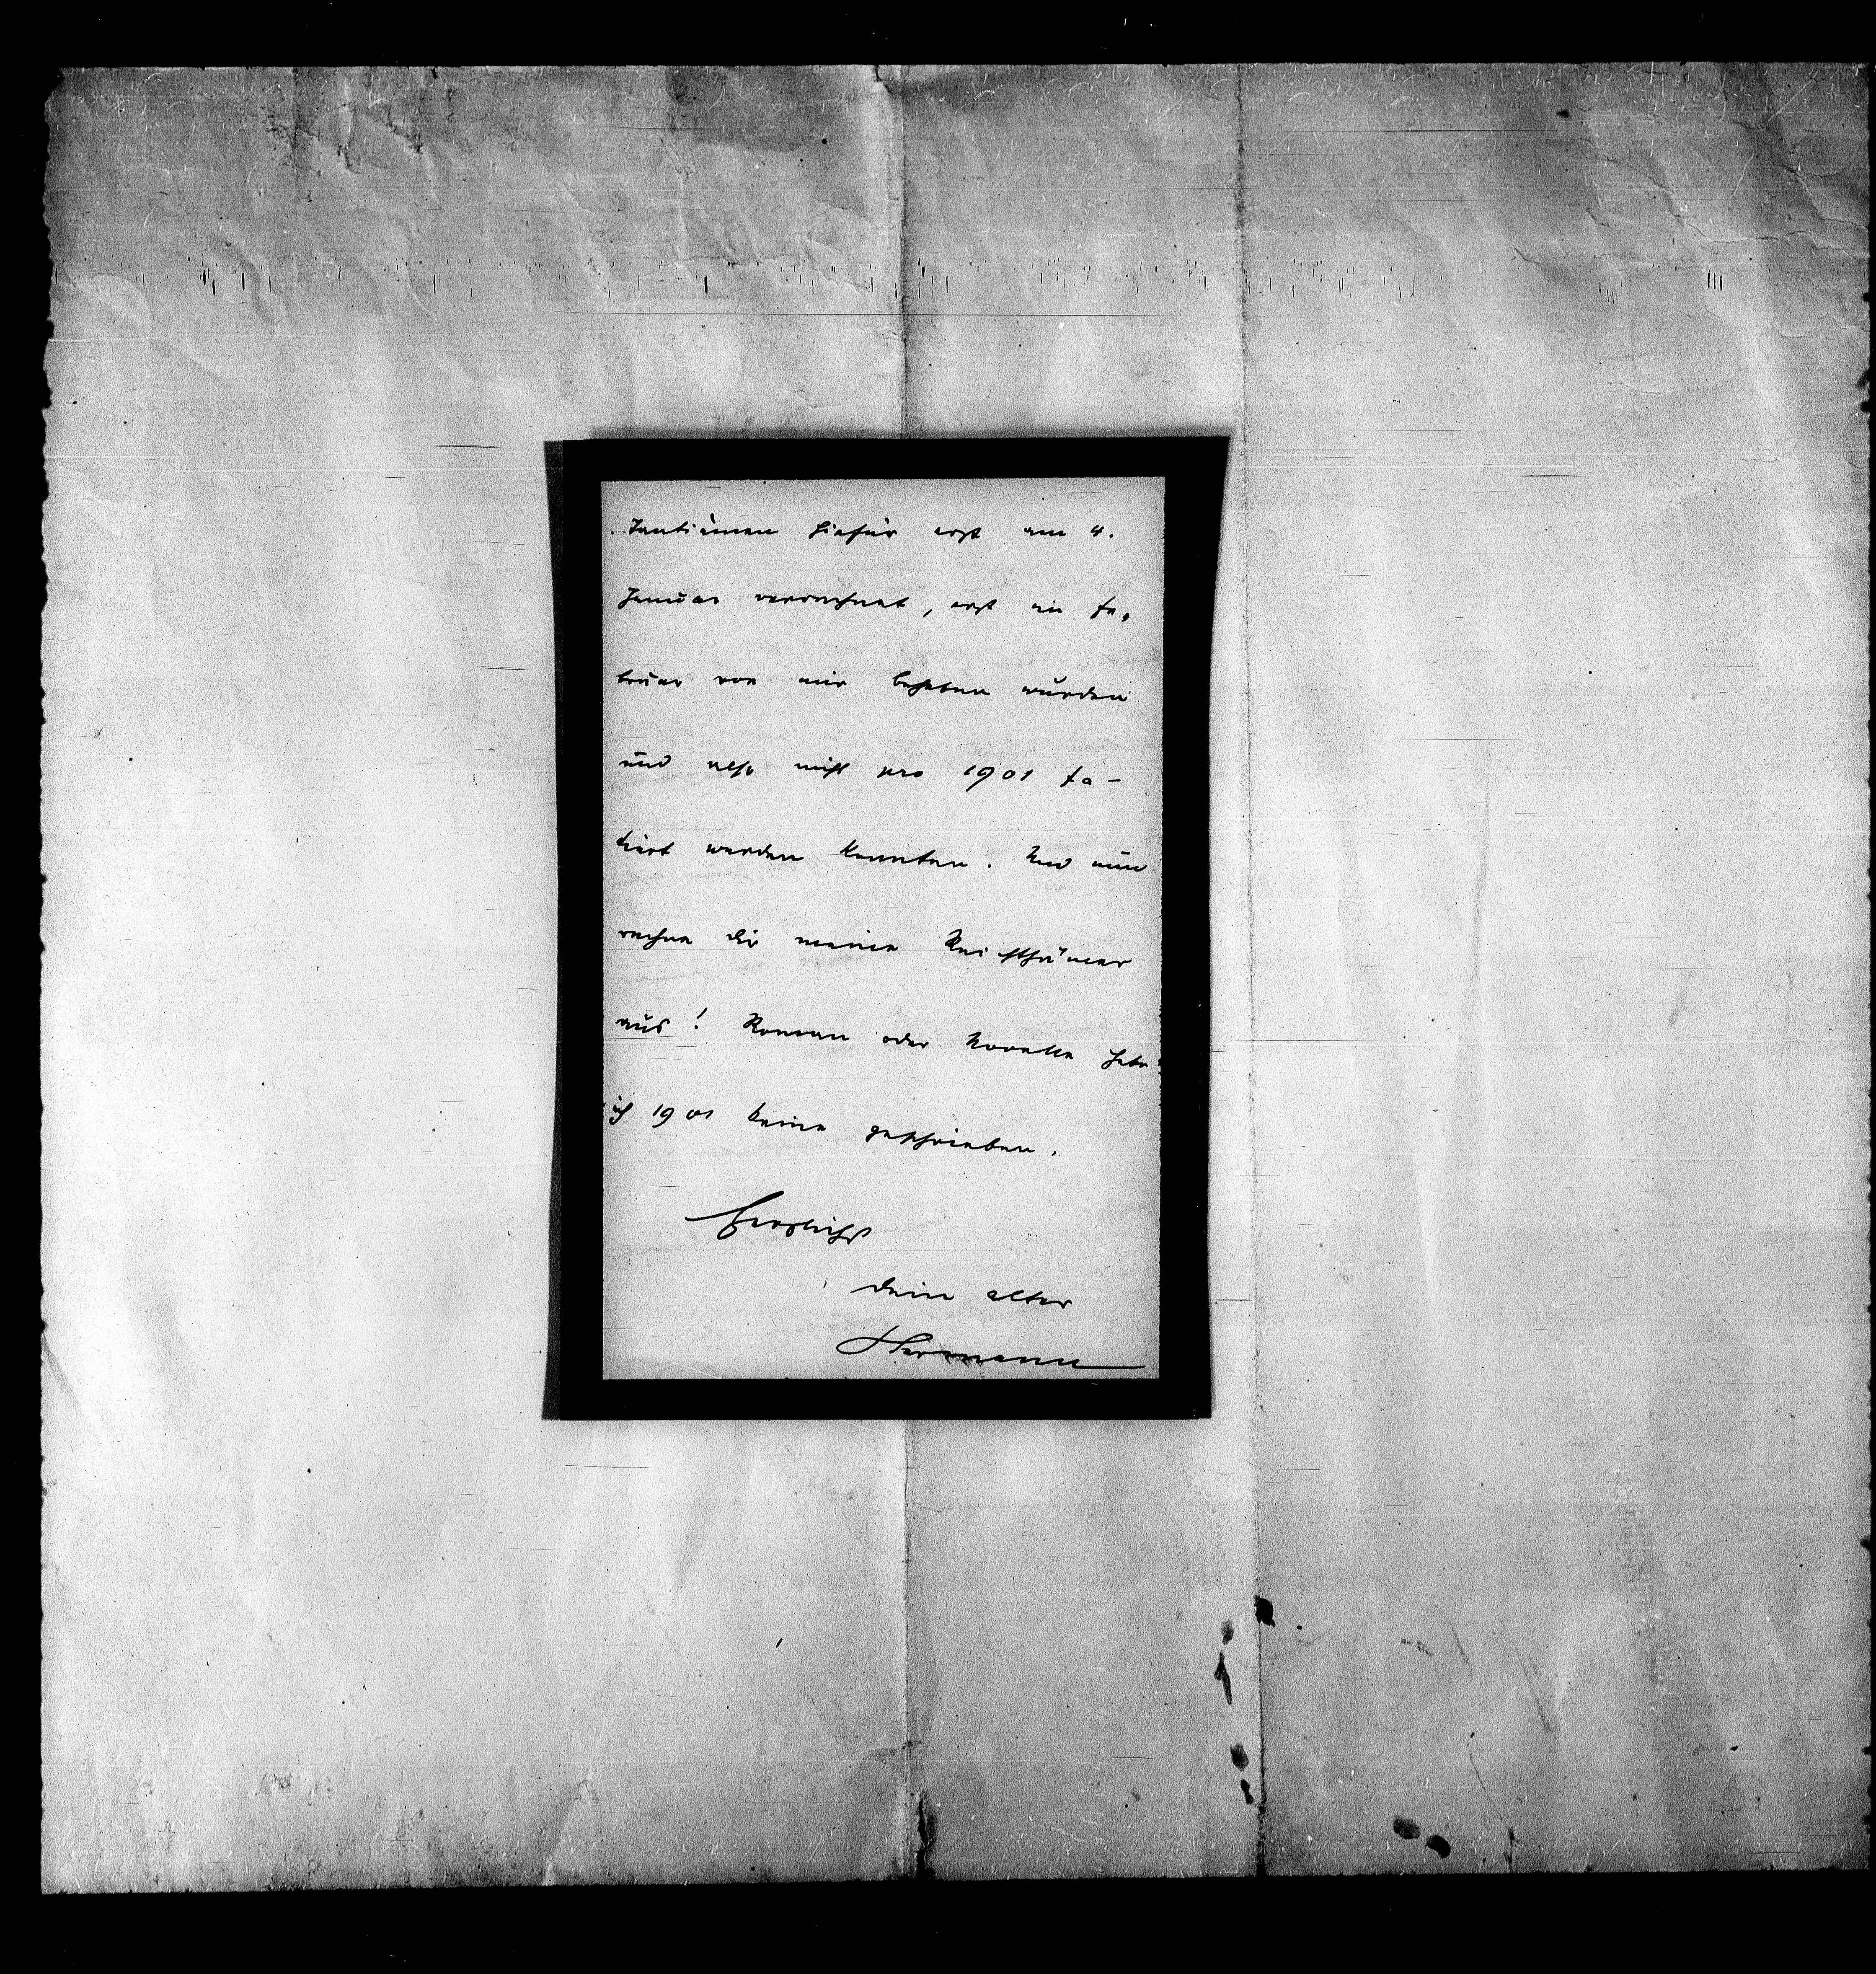 Tantièmen hiefür erst am 4.
Januar verrechnet, erst im Fe-
bruar von mir behoben wurden
und also nicht pro 1901 fa-
tirt werden konnten. Und nun
rechne dir meine Reichthümer
aus! Roman oder Novelle habe
ich 1901 keine geschrieben.
Herzlichst
Dein alter
Hermann